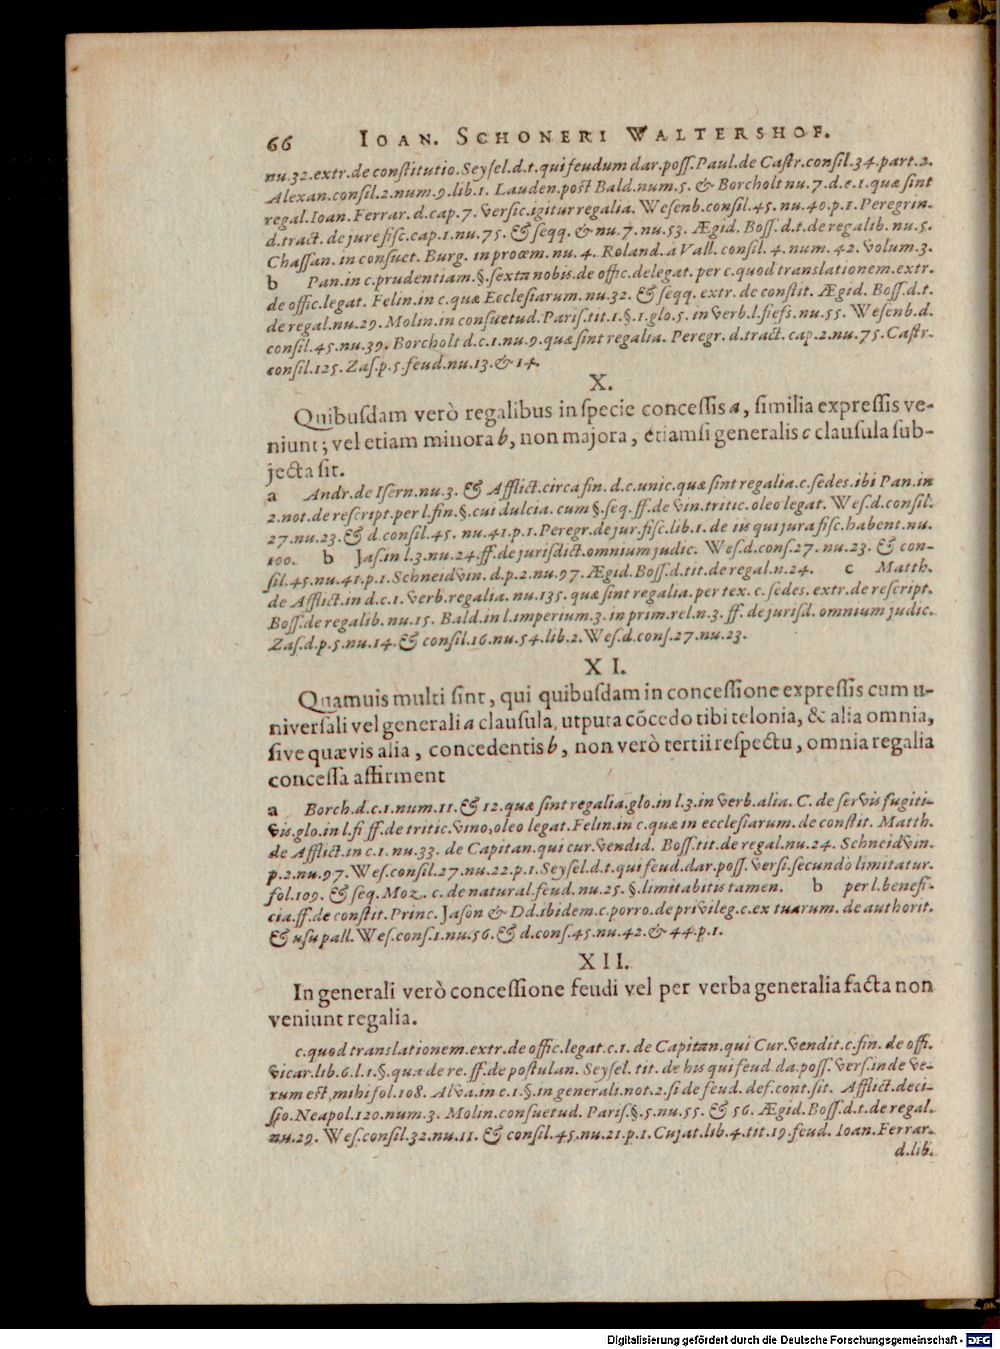 66 IOAN. SCHONERI WALTERSHOF.
nu.32.extr.de constitutio.Seysel.d.t.qui feudum dar.poss.Paul.de Castr.consil.34.part.2.
Alexan.consil.2.num.9.lib.1. Lauden.post Bald.num.5. & Borcholt nu.7.d.c.1.quæ sint
regal.Ioan. Ferrar. d.cap.7. versic.igitur regalia. Wesenb.consil.45.nu.40.p.1. Peregrin.
d.tract. de jure fisc.cap.1.nu.75. & seqq. & nu.7.nu.53. Ægid. Boss.d.t.de regalib.nu.5.
Chassan.in consuet. Burg. in proœm.nu.4. Roland. à Vall. consil. 4. num. 42. volum.3.
b Pan.in c.prudentiam.§.sexta nobis.de offic.delegat. per c.quod translationem.extr.
de offic.legat. Felin.in c.quæ Ecclesiarum.nu.32. & seqq. extr. de constit. Ægid. Boss.d.t.
de regal.nu.29. Molin.in consuetud.Paris.tit.1.§.1.glo.5. in verb.l.fiefs.nu.55. Wesenb.d.
consil.45.nu.39. Borcholt d.c.1.nu.9.quæ sint regalia. Peregr.d.tract. cap.2.nu.75.Castr.
consil.125.Zas.p.5.feud.nu.13.& 14.
X.
Quibusdam verò regalibus in specie concessis a, similia expressis ve-
niunt; vel etiam minora b, non majora, etiamsi generalis c clausula sub-
jecta sit.
a Andr.de Isern.nu.3. & Afflict.circa fin. d.c.unic.quæ sint regalia.c.sedes.ibi Pan.in
2.not.de rescript.per l.fin.§.cui dulcia. cum §.seq. ff.de vin.tritic.oleo legat. Wes.d.consil.
27.nu.23.& d.consil.45. nu.41.p.1.Peregr.de jur.fisc.lib.1. de iis qui jura fisc.habent.nu.
100. b Jas.in l.3.nu.24.ff.de jurisdict.omnium judic. Wes.d.cons.27. nu.23. & con-
sil.45.nu.41.p.1.Schneidvin. d.p.2.nu.97.Ægid.Boss.d.tit.de regal.n.24. c Matth.
de Afflict.in d.c.1.verb.regalia. nu.135. quæ sint regalia.per tex. c.sedes. extr.de rescript.
Boss.de regalib.nu.15. Bald.in l.imperium.3.in prim.rel.n.3. ff. de jurisd. omnium judic.
Zas.d.p.5.nu.14.& consil.16.nu.54.lib.2.Wes.d.cons.27.nu.23.
XI.
Quamuis multi sint, qui quibusdam in concessione expressis cum u-
niversali vel generali a clausula, utputa cõcedo tibi telonia, & alia omnia,
sive quævis alia, concedentis b, non verò tertii respectu, omnia regalia
concessa affirment
a Borch.d.c.1.num.11.& 12.quæ sint regalia.glo.in l.3.in verb.alia. C. de servis fugiti-
vis.glo.in l.fi ff.de tritic.vino, oleo legat.Felin.in c.quæ in ecclesiarum.de constit. Matth.
de Afflict.in c.1.nu.33. de Capitan.qui cur.vendid. Boss.tit.de regal.nu.24. Schneidvin.
p.2.nu.97.Wes.consil.27.nu.22.p.1.Seysel.d.t.qui feud.dar.poss.versi.secundò limitatur.
fol.109. & seq.Moz. c. de natural.feud.nu.25.§.limitabitis tamen. b per l.benefi-
cia.ff.de constit. Princ.Jason & Dd.ibidem.c.porro.de privileg.c.ex tuarum. de authorit.
& usu pall.Wes.cons.1.nu.56.& d.cons.45.nu.42.& 44.p.1.
XII.
In generali verò concessione feudi vel per verba generalia facta non
veniunt regalia.
c.quod translationem.extr.de offic.legat.c.1. de Capitan.qui Cur.vendit.c.fin. de offi.
vicar.lib.6.l.1.§.qua de re.ff.de postulan. Seysel. tit. de his qui feud.da.poss.vers.inde ve-
rum est, mihi fol.108. Alva.in c.1.§.in generali.not.2.si de feud. def.cont.sit. Afflict.deci-
sio.Neapol.120.num.3. Molin.consuetud. Paris.§.5.nu.55. & 56. Ægid.Boss.d.t.de regal.
nu.29. Wes.consil.32.nu.11. & consil.45.nu.21.p.1.Cujat.lib.4.tit.19.feud. Ioan.Ferrar.
d.lib.
Digitalisierung gefördert durch die Deutsche Forschungsgemeinschaft - DFG